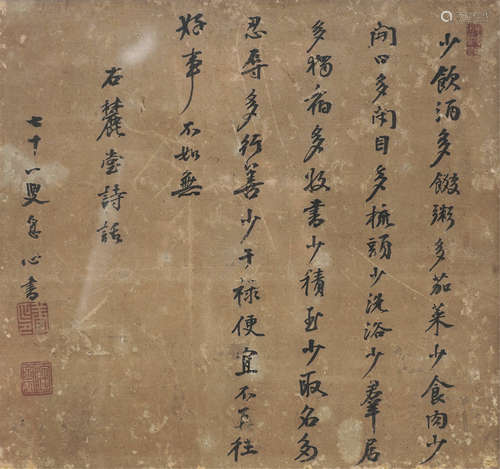 少飲酒多餟粥多茄菜少食肉少
開口多閉目多梳頭少洗浴少羣居
多獨宿多收書少積玉少取名多
忍辱多行善少干祿便宜不再往
好事不如無
右麓堂詩話
七十一叟息心書